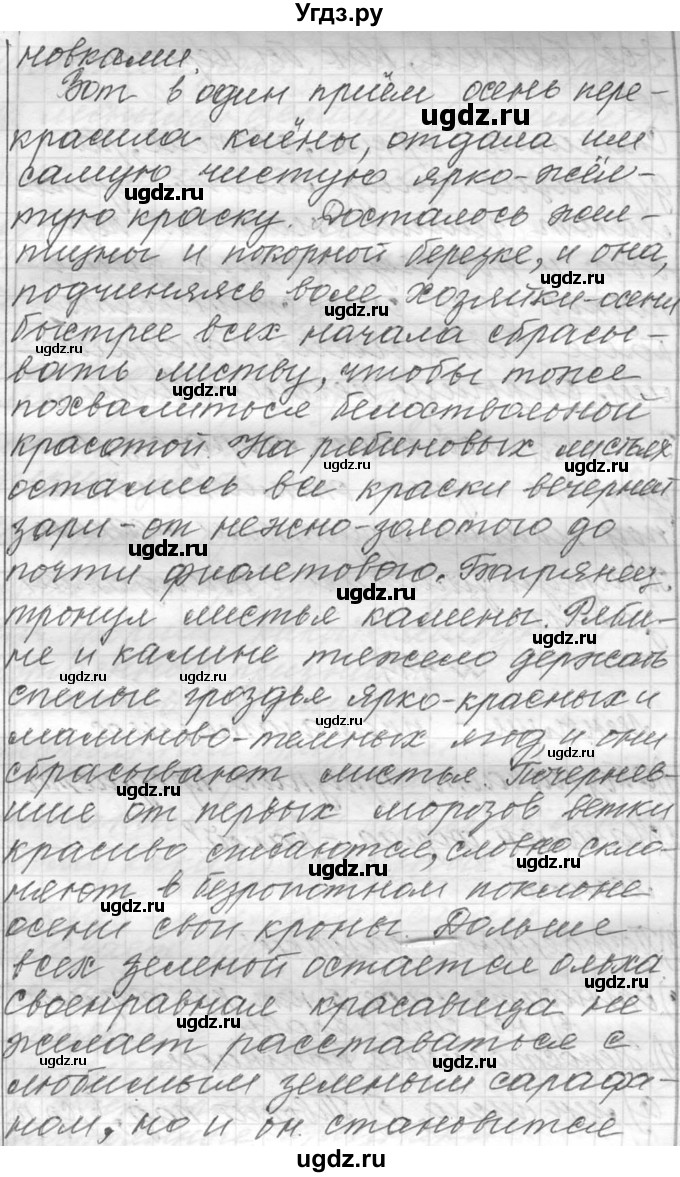 Угдз.ру
новками.
Вот в один приём осень пере-
ugdz.ru
красила клёны, отдала им
самую чистую ярко-жёл-
ugdz.ru
тую краску. Досталось жел-
тизны и покорной березке, и она,
ugdz.ru
подчиняясь воле хозяйки-осени
ugdz.ru
быстрее всех начала сбрасы-
ugdz.ru
вать листву, чтобы тоже
ugdz.ru
похвалиться белоствольной
красотой. На рябиновых листьях
ugdz.ru ugdz.ru
остались все краски вечерней
зари - от нежно-золотого до
ugdz.ru
почти фиолетового. Багрянец
ugdz.ru
тронул листья калины. Ряби-
ugdz.ru
не и калине тяжело держать
ugdz.ru ugdz.ru
спелые гроздья ярко-красных и
ugdz.ru
малиново-темных ягод, и они
ugdz.ru
сбрасывают листья. Почернев-
ugdz.ru
шие от первых морозов ветки
красиво сгибаются, словно скло-
ugdz.ru ugdz.ru
няют в безропотном поклоне
ugdz.ru
осени свои кроны. Дольше
всех зеленой остается ольха.
своенравная красавица не
ugdz.ru
желает расставаться с
ugdz.ru ugdz.ru
любимым зеленым сарафа-
ном, но и он становится
ugdz.ru